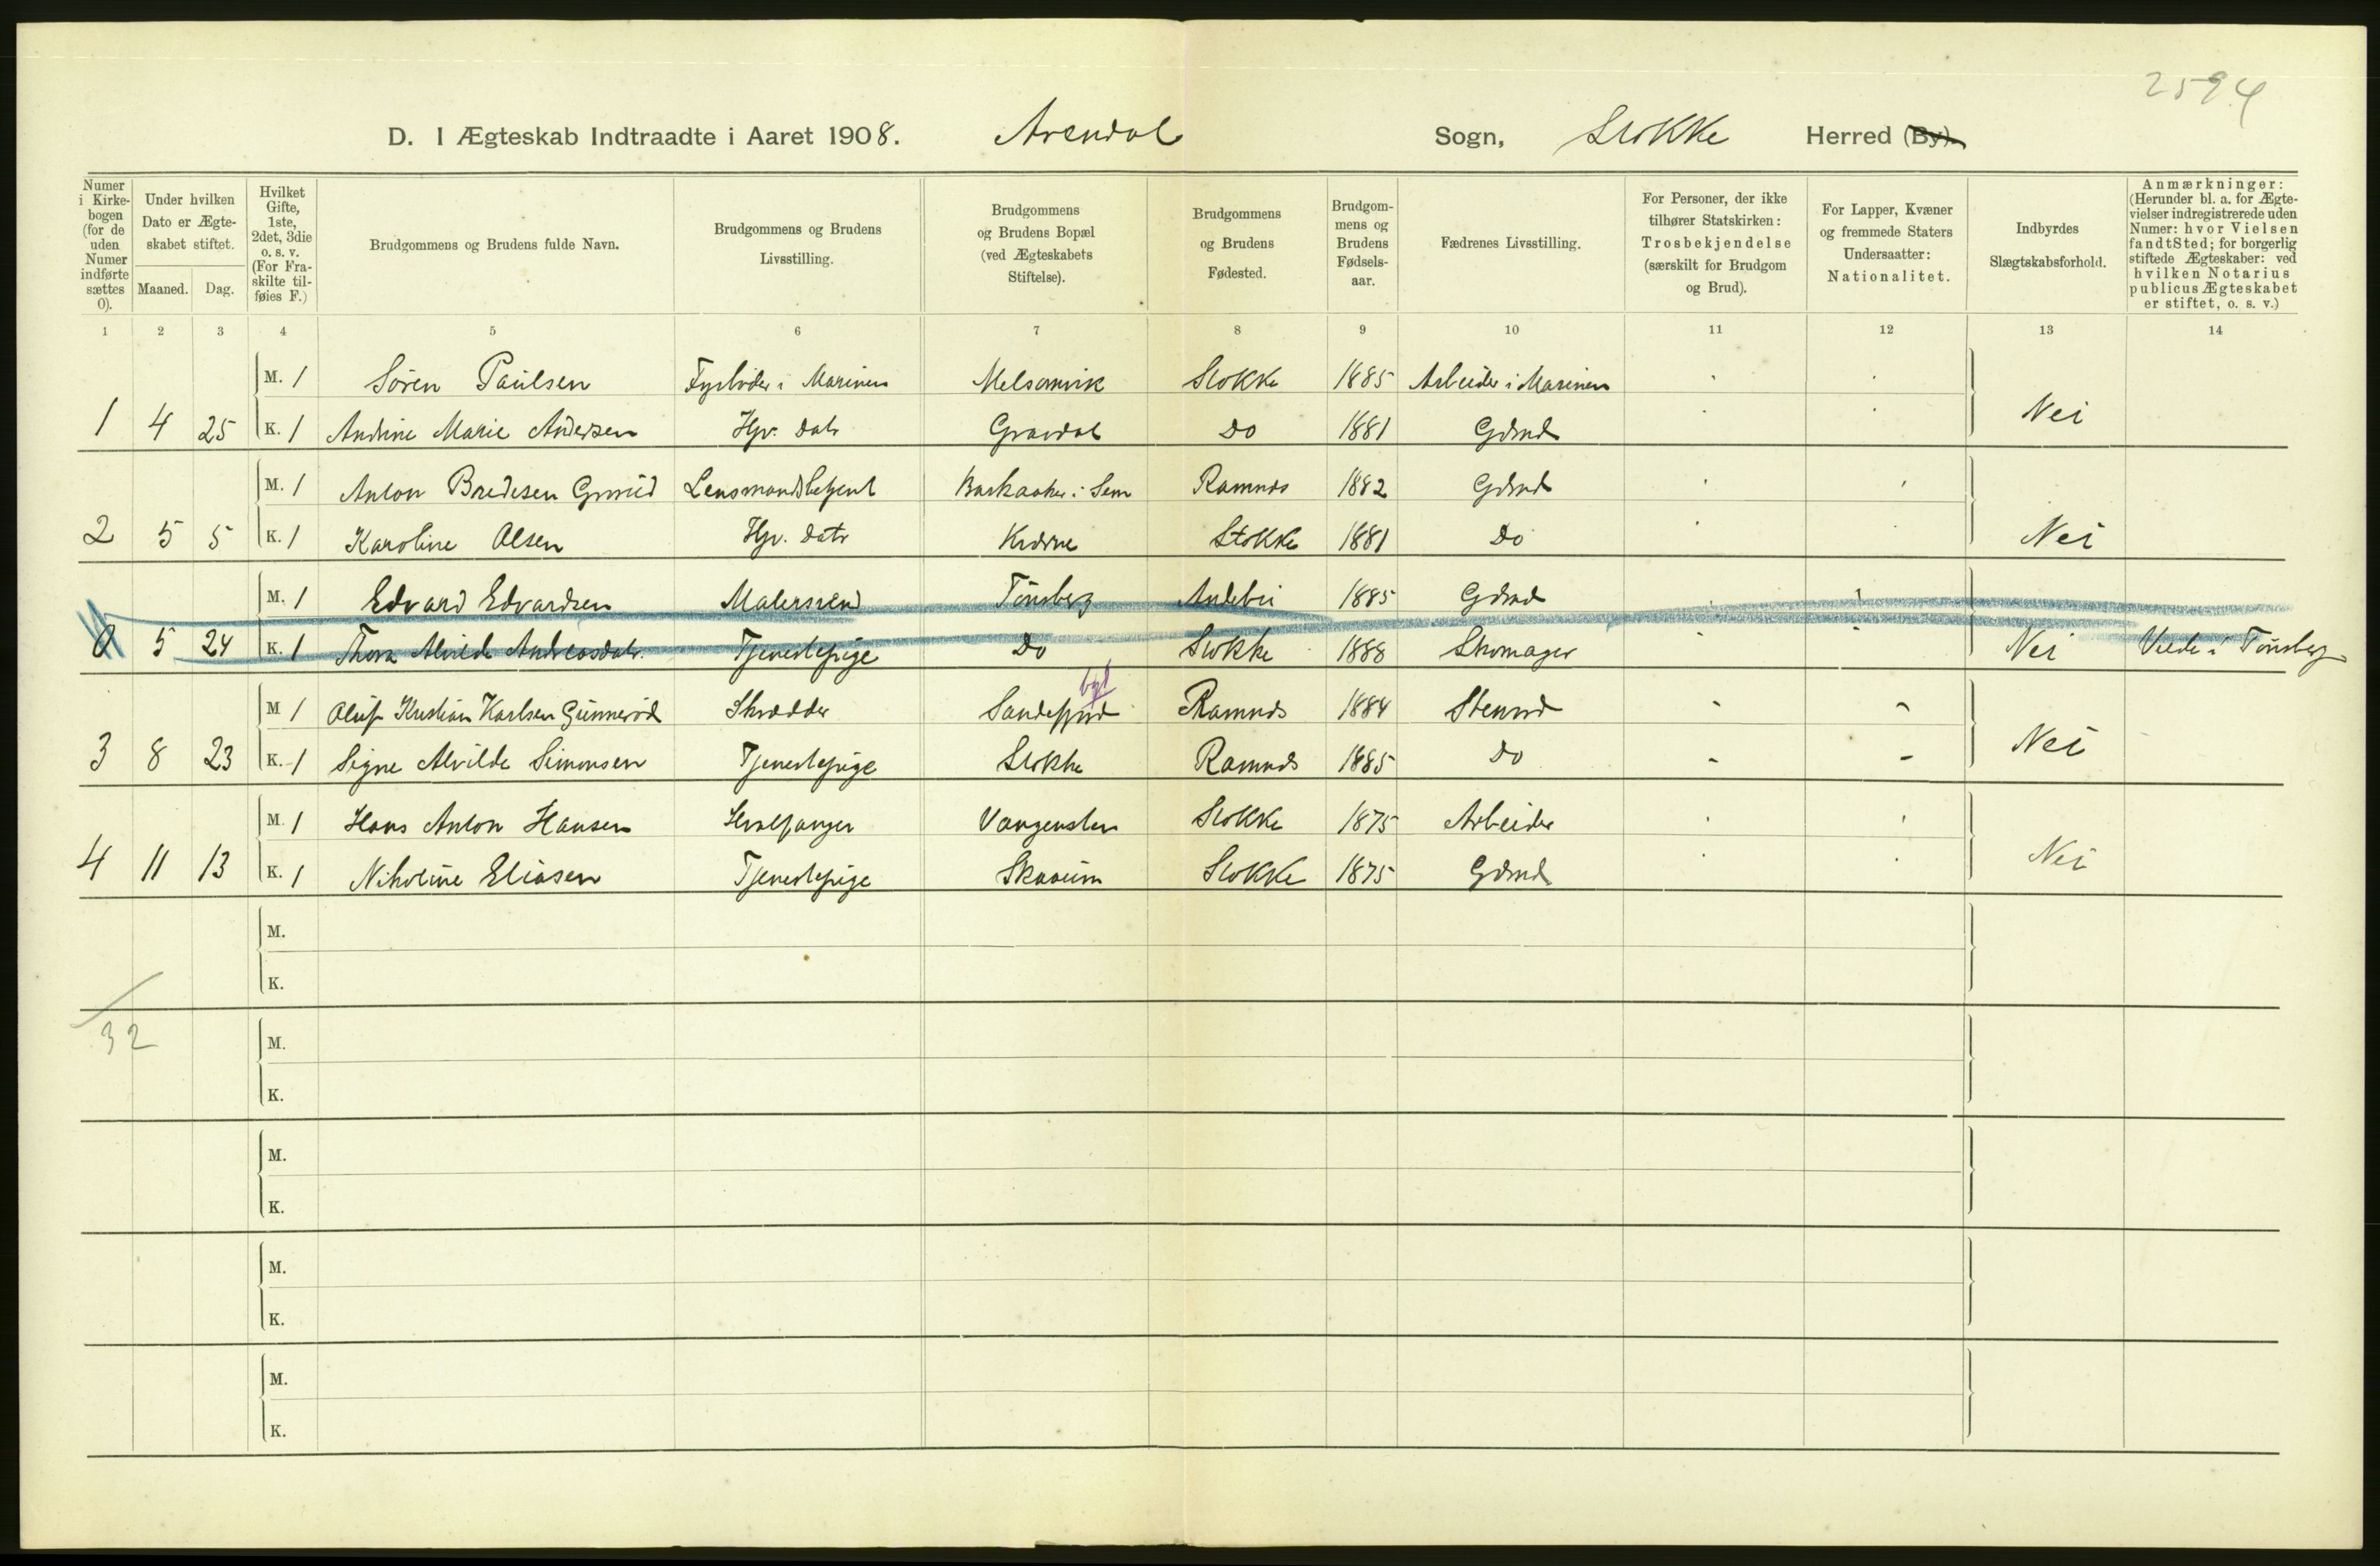 2594
D. I Ægteskab Indtraadte i Aaret 1908. Arendal Sogn, Stokke Herred (By).
Numer i Kirkebogen (for de uden Numer indførte sættes 0).
Under hvilken Dato er Ægteskabet stiftet.
Maaned. Dag.
Hvilket Gifte, 1ste, 2det, 3die o. s. v. (For Fraskilte tilføies F.)
Brudgommens og Brudens fulde Navn.
Brudgommens og Brudens Livsstilling.
Brudgommens og Brudens Bopæl (ved Ægteskabets Stiftelse).
Brudgommens og Brudens Fødested.
Brudgommens og Brudens Fødselsaar.
Fædrenes Livsstilling.
For Personer, der ikke tilhører Statskirken: Trosbekjendelse (særskilt for Brudgom og Brud).
For Lapper, Kvæner og fremmede Staters Undersaatter: Nationalitet.
Indbyrdes Slægtskabsforhold.
Anmærkninger: (Herunder bl. a. for Ægtevielser indregistrerede uden Numer: hvor Vielsen fandt Sted; for borgerlig stiftede Ægteskaber: ved hvilken Notarius publicus Ægteskabet er stiftet, o. s. v.)
1 2 3 4 5 6 7 8 9 10 11 12 13 14
M. 1 Sören Paulsen Fyrbøder i Marinen Melsomvik Stokke 1885 Arbeider i Marinen
1 4 25 K. 1 Andrine Marie Andersen Hjv. datr Gravdal Do 1881 Gdmd Nei
M. 1 Anton Bredesen Lensmandsbetjent Barkaaker i Sem Ramnes 1882 Gdmd
2 5 5 K. 1 Karoline Olsen Hjv. datr 	Stokke 1881 Do Nei
M. 1 Edvard Edvardsen Malersvend Tönsberg Andebu 1885 Gdmd
0 5 24 K. 1 Thora Alvilde Andreasdatr. Tjenestepige Do Stokke 1888 Skomager Nei Viede i Tönsberg
byd
M 1 Oluf Kristian Karlsen Gunneröd Skrædder Sandefjord Ramnes 1884
3 8 23 K. 1 Signe Alvilde Simonsen Tjenestepige Stokke Ramnes 1885 Do Nei
M. 1 Hans Anton Hansen Hvalfanger Vangensten Stokke 1875 Arbeider
4 11 13 K. 1 Nikoline Eliasen Tjenestepige Skaaum Stokke 1875 Gdmd Nei
M.
K.
32
M.
K.
M.
K.
M.
K.
M.
K.